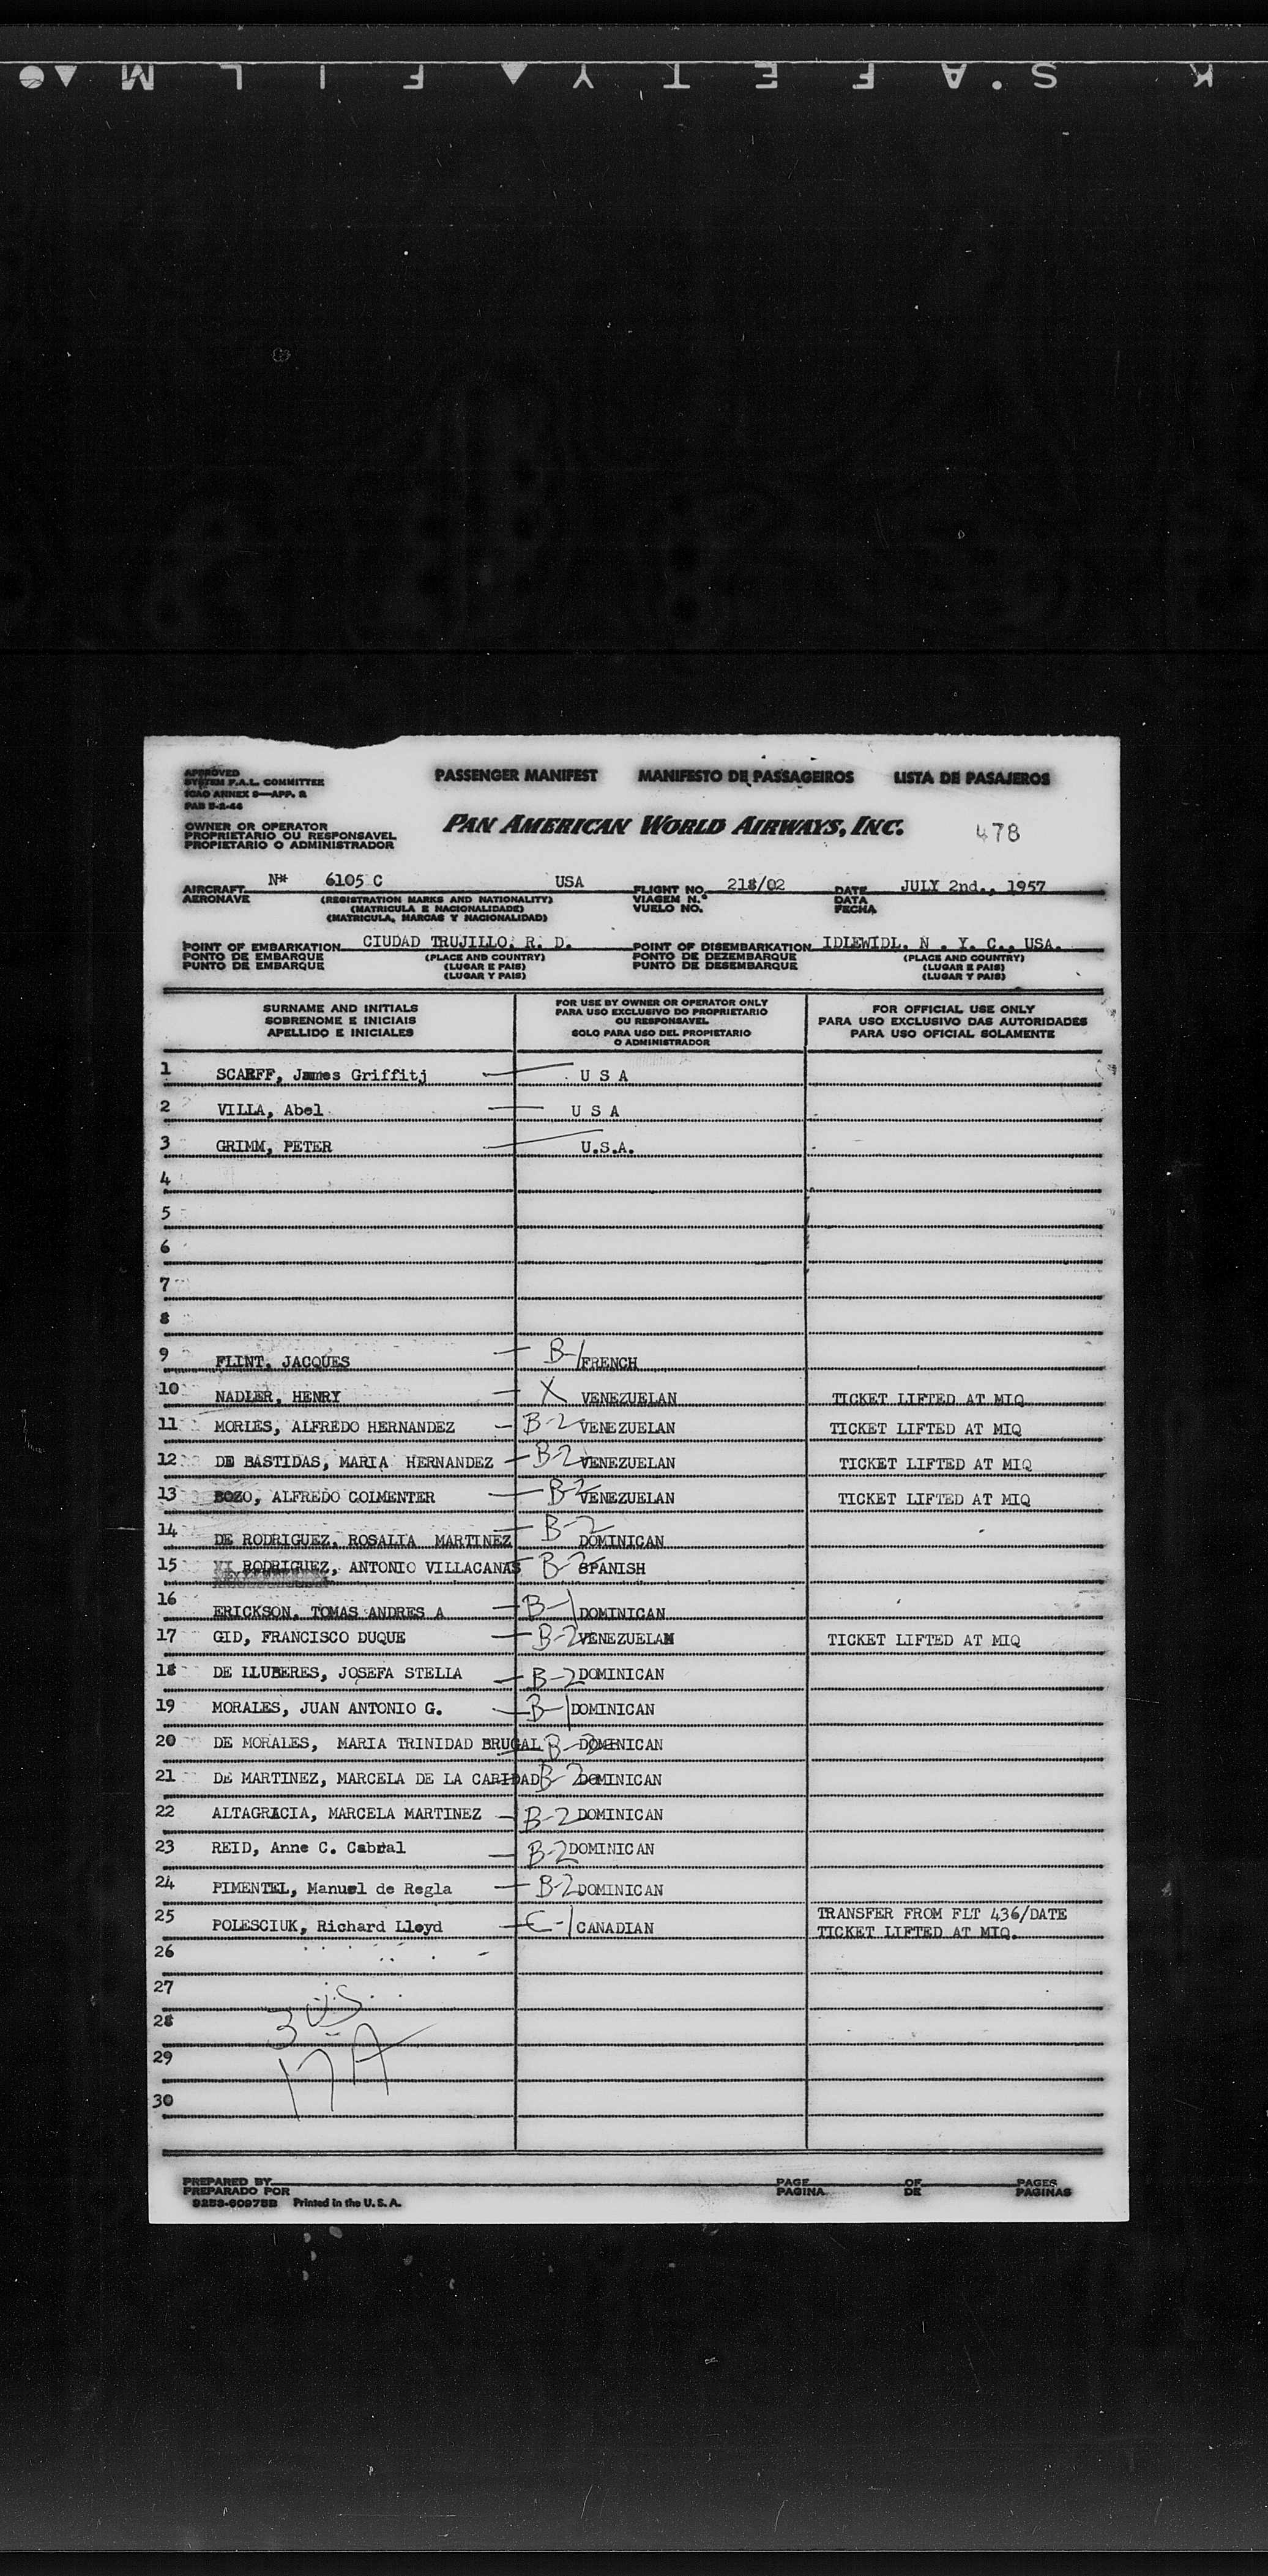 K S.AFETY▲FILM▲●
APPROVED
SYSTEM F.A.L. COMMITTEE
ICAO ANNEX 9—APP. 2
PAB 5-2-44
PASSENGER MANIFEST MANIFESTO DE PASSAGEIROS LISTA DE PASAJEROS
OWNER OR OPERATOR
PROPRIETARIO OU RESPONSAVEL
PROPIETARIO O ADMINISTRADOR
PAN AMERICAN WORLD AIRWAYS, INC. 478
AIRCRAFT N* 6105 C USA FLIGHT NO. 218/02 DATE JULY 2nd., 1957
AERONAVE (REGISTRATION MARKS AND NATIONALITY) VIAGEM N.° DATA
(MATRICULA E NACIONALIDADE) VUELO NO. FECHA
(MATRICULA, MARCAS Y NACIONALIDAD)
POINT OF EMBARKATION CIUDAD TRUJILLO, R. D. POINT OF DISEMBARKATION IDLEWIDL, N . Y. C., USA.
PONTO DE EMBARQUE (PLACE AND COUNTRY) PONTO DE DEZEMBARQUE (PLACE AND COUNTRY)
PUNTO DE EMBARQUE (LUGAR E PAIS) PUNTO DE DESEMBARQUE (LUGAR E PAIS)
(LUGAR Y PAIS) (LUGAR Y PAIS)
SURNAME AND INITIALS
SOBRENOME E INICIAIS
APELLIDO E INICIALES
FOR USE BY OWNER OR OPERATOR ONLY
PARA USO EXCLUSIVO DO PROPRIETARIO
OU RESPONSAVEL
SOLO PARA USO DEL PROPIETARIO
O ADMINISTRADOR
FOR OFFICIAL USE ONLY
PARA USO EXCLUSIVO DAS AUTORIDADES
PARA USO OFICIAL SOLAMENTE
1 SCARFF, James Griffitj U S A
2 VILLA, Abel U S A
3 GRIMM, PETER U.S.A.
4
5
6
7
8
9 FLINT, JACQUES B-1 FRENCH
10 NADLER, HENRY X VENEZUELAN TICKET LIFTED AT MIQ
11 MORLES, ALFREDO HERNANDEZ B-2 VENEZUELAN TICKET LIFTED AT MIQ
12 DE BASTIDAS, MARIA HERNANDEZ B-2 VENEZUELAN TICKET LIFTED AT MIQ
13 BOZO, ALFREDO COLMENTER B-2 VENEZUELAN TICKET LIFTED AT MIQ
14 DE RODRIGUEZ, ROSALIA MARTINEZ B-2 DOMINICAN
15 RODRIGUEZ, ANTONIO VILLACANAS B-2 SPANISH
16 ERICKSON, TOMAS ANDRES A B-1 DOMINICAN
17 GID, FRANCISCO DUQUE B-2 VENEZUELAN TICKET LIFTED AT MIQ
18 DE LLUBERES, JOSEFA STELLA B-2 DOMINICAN
19 MORALES, JUAN ANTONIO G. B-1 DOMINICAN
20 DE MORALES, MARIA TRINIDAD BRUGAL B-2 DOMINICAN
21 DE MARTINEZ, MARCELA DE LA CARIDAD B-2 DOMINICAN
22 ALTAGRACIA, MARCELA MARTINEZ B-2 DOMINICAN
23 REID, Anne C. Cabral B-2 DOMINICAN
24 PIMENTEL, Manuel de Regla B-2 DOMINICAN
25 POLESCIUK, Richard Lloyd C-1 CANADIAN TRANSFER FROM FLT 436/DATE
TICKET LIFTED AT MIQ.
26
27
3 US.
28
29
17 A
30
PREPARED BY PAGE OF PAGES
PREPARADO POR PAGINA DE PAGINAS
9253-60975B Printed in the U. S. A.